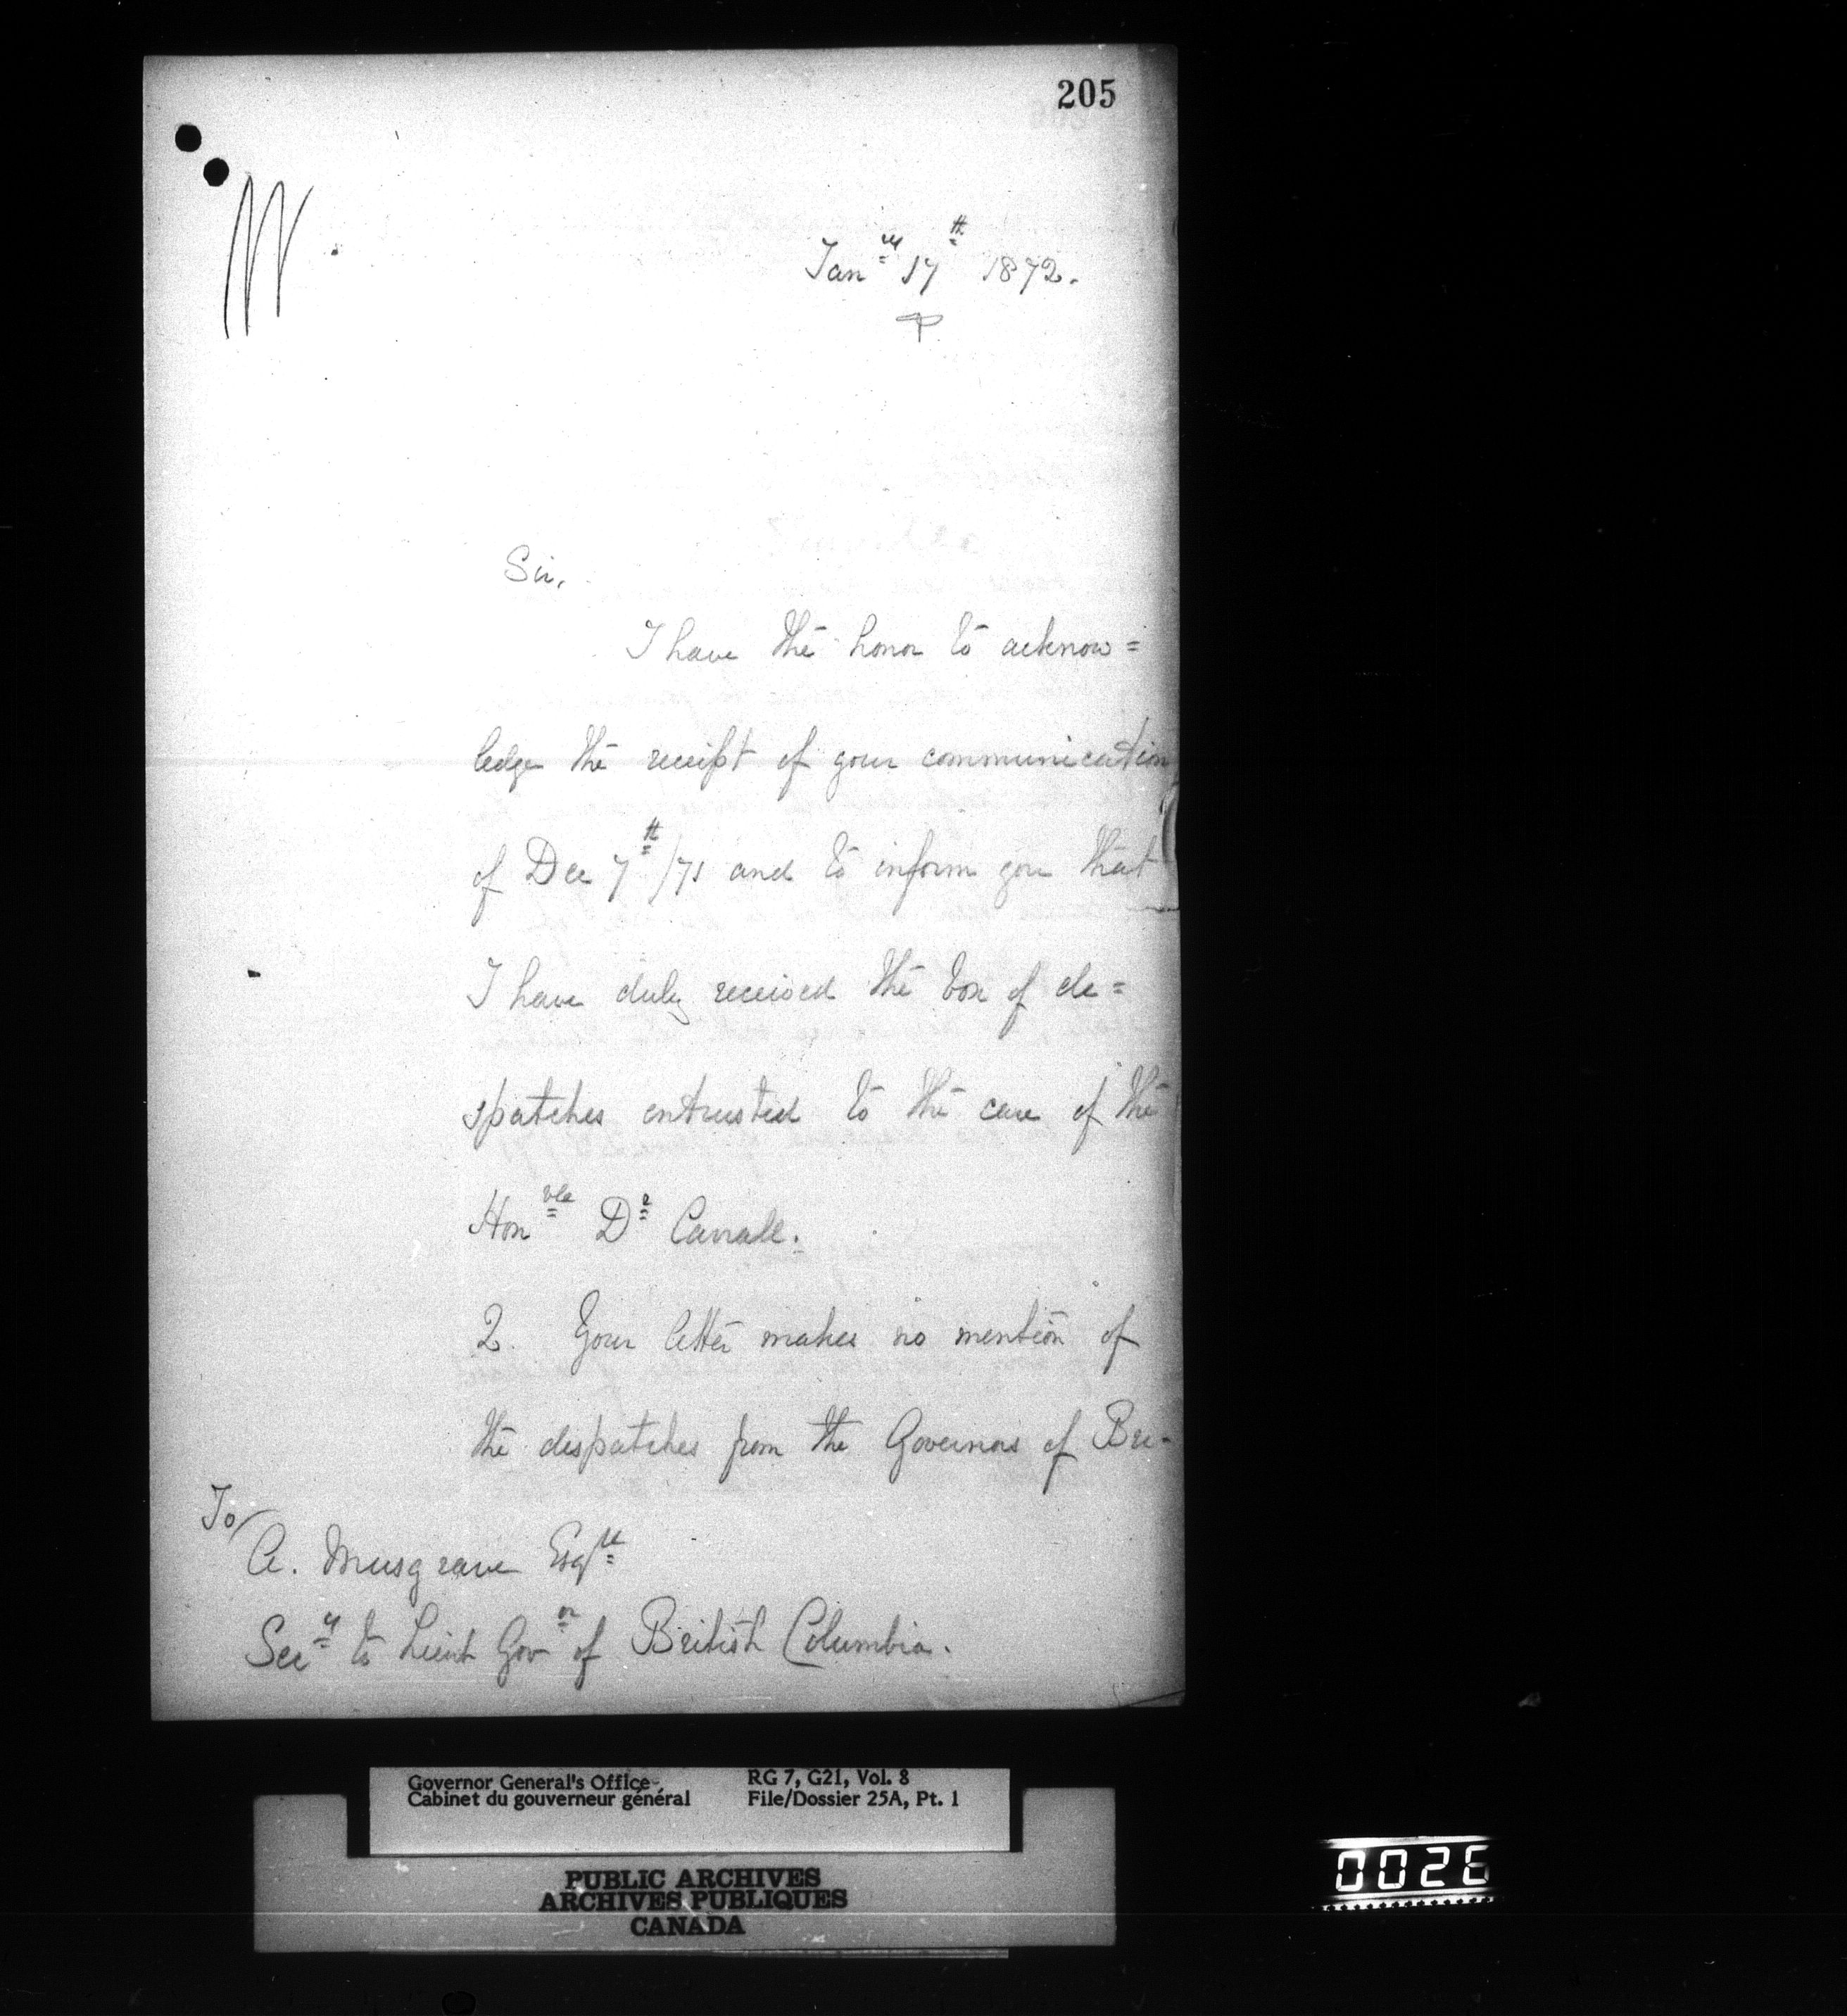 205
Jan^ry 17^th 1872.
Sir,
I have the honor to acknow=
ledge the receipt of your communication
of Dec 7^th/71 and to inform you that
I have duly received the box of de=
spatches entrusted to the care of the
Hon^ble D^r Carrall.
2. Your letter makes no mention of
the despatches from the Governors of Bri-
To
A. Musgrave Esq^re
Sec^y to Lieut Gov^or of British Columbia.
Governor General's Office RG 7, G21, Vol. 8
Cabinet du gouverneur général File/Dossier 25A, Pt. 1
PUBLIC ARCHIVES
ARCHIVES PUBLIQUES
CANADA
0026